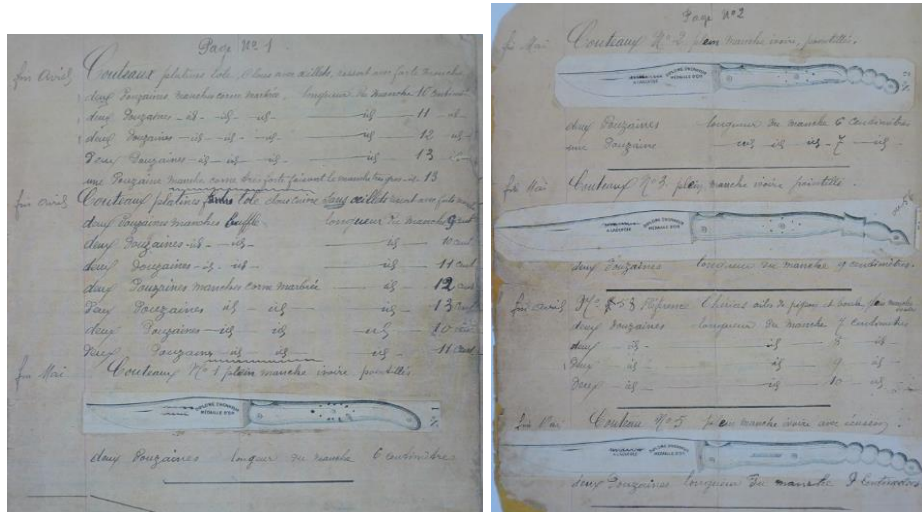 Page N° 1
fin Avril Couteaux platines tôle, clous avec œillets, ressort avec forte mouche
deux Douzaines manches corne marbrée. longueur du manche 10 cent
deux Douzaines - id - id - id - id 11 id
deux Douzaines - id - id - id - id 12 id
Deux Douzaines - id - id - id - id 13
une Douzaine manche corne très forte faisant le manche très gros id 13
fin Avril Couteaux platines fortes tôle clous cuivre sans œillets ressort avec forte
deux Douzaines manches buffle longueur du manche 9 cent
deux Douzaines - id - id - id 10 cent
deux Douzaines - id - id - id 11 cent
deux Douzaines manches corne marbrée id 12 cent
Deux Douzaines id - id id 13 cent
deux Douzaines - id id - id - 10
Deux Douzaines id id id - 11 cent
fin Mai Couteaux N° 1 plein manche ivoire pointillés
DIPLÔME D'HONNEUR
MÉDAILLE D'OR
N° 1
deux Douzaines longueur du manche 6 centimètres
Page N° 2
fin Mai Couteaux N° 2 plein manche ivoire, pointillés.
A LAGUIOLE
DIPLÔME D'HONNEUR
MÉDAILLE D'OR
N° 2
deux Douzaines longueur du manche 6 centimètres
une Douzaine id id id - 7 - id -
fin Mai Couteaux N° 3. plein manche ivoire pointillé.
A LAGUIOLE
DIPLÔME D'HONNEUR
MÉDAILLE D'OR
N° 3
deux Douzaines longueur du manche 9 centimètres.
fin Avril N° 53 ailes de pigeon et
deux Douzaines longueur du manche 7 centimètres
deux id - id 8 id -
Deux id id 9 - id -
Deux id - id 10 - id -
fin Mai Couteau N° 5 plein manche ivoire avec écusson.
A LAGUIOLE
DIPLÔME D'HONNEUR
MÉDAILLE D'OR
deux Douzaines longueur du manche 9 centimètres